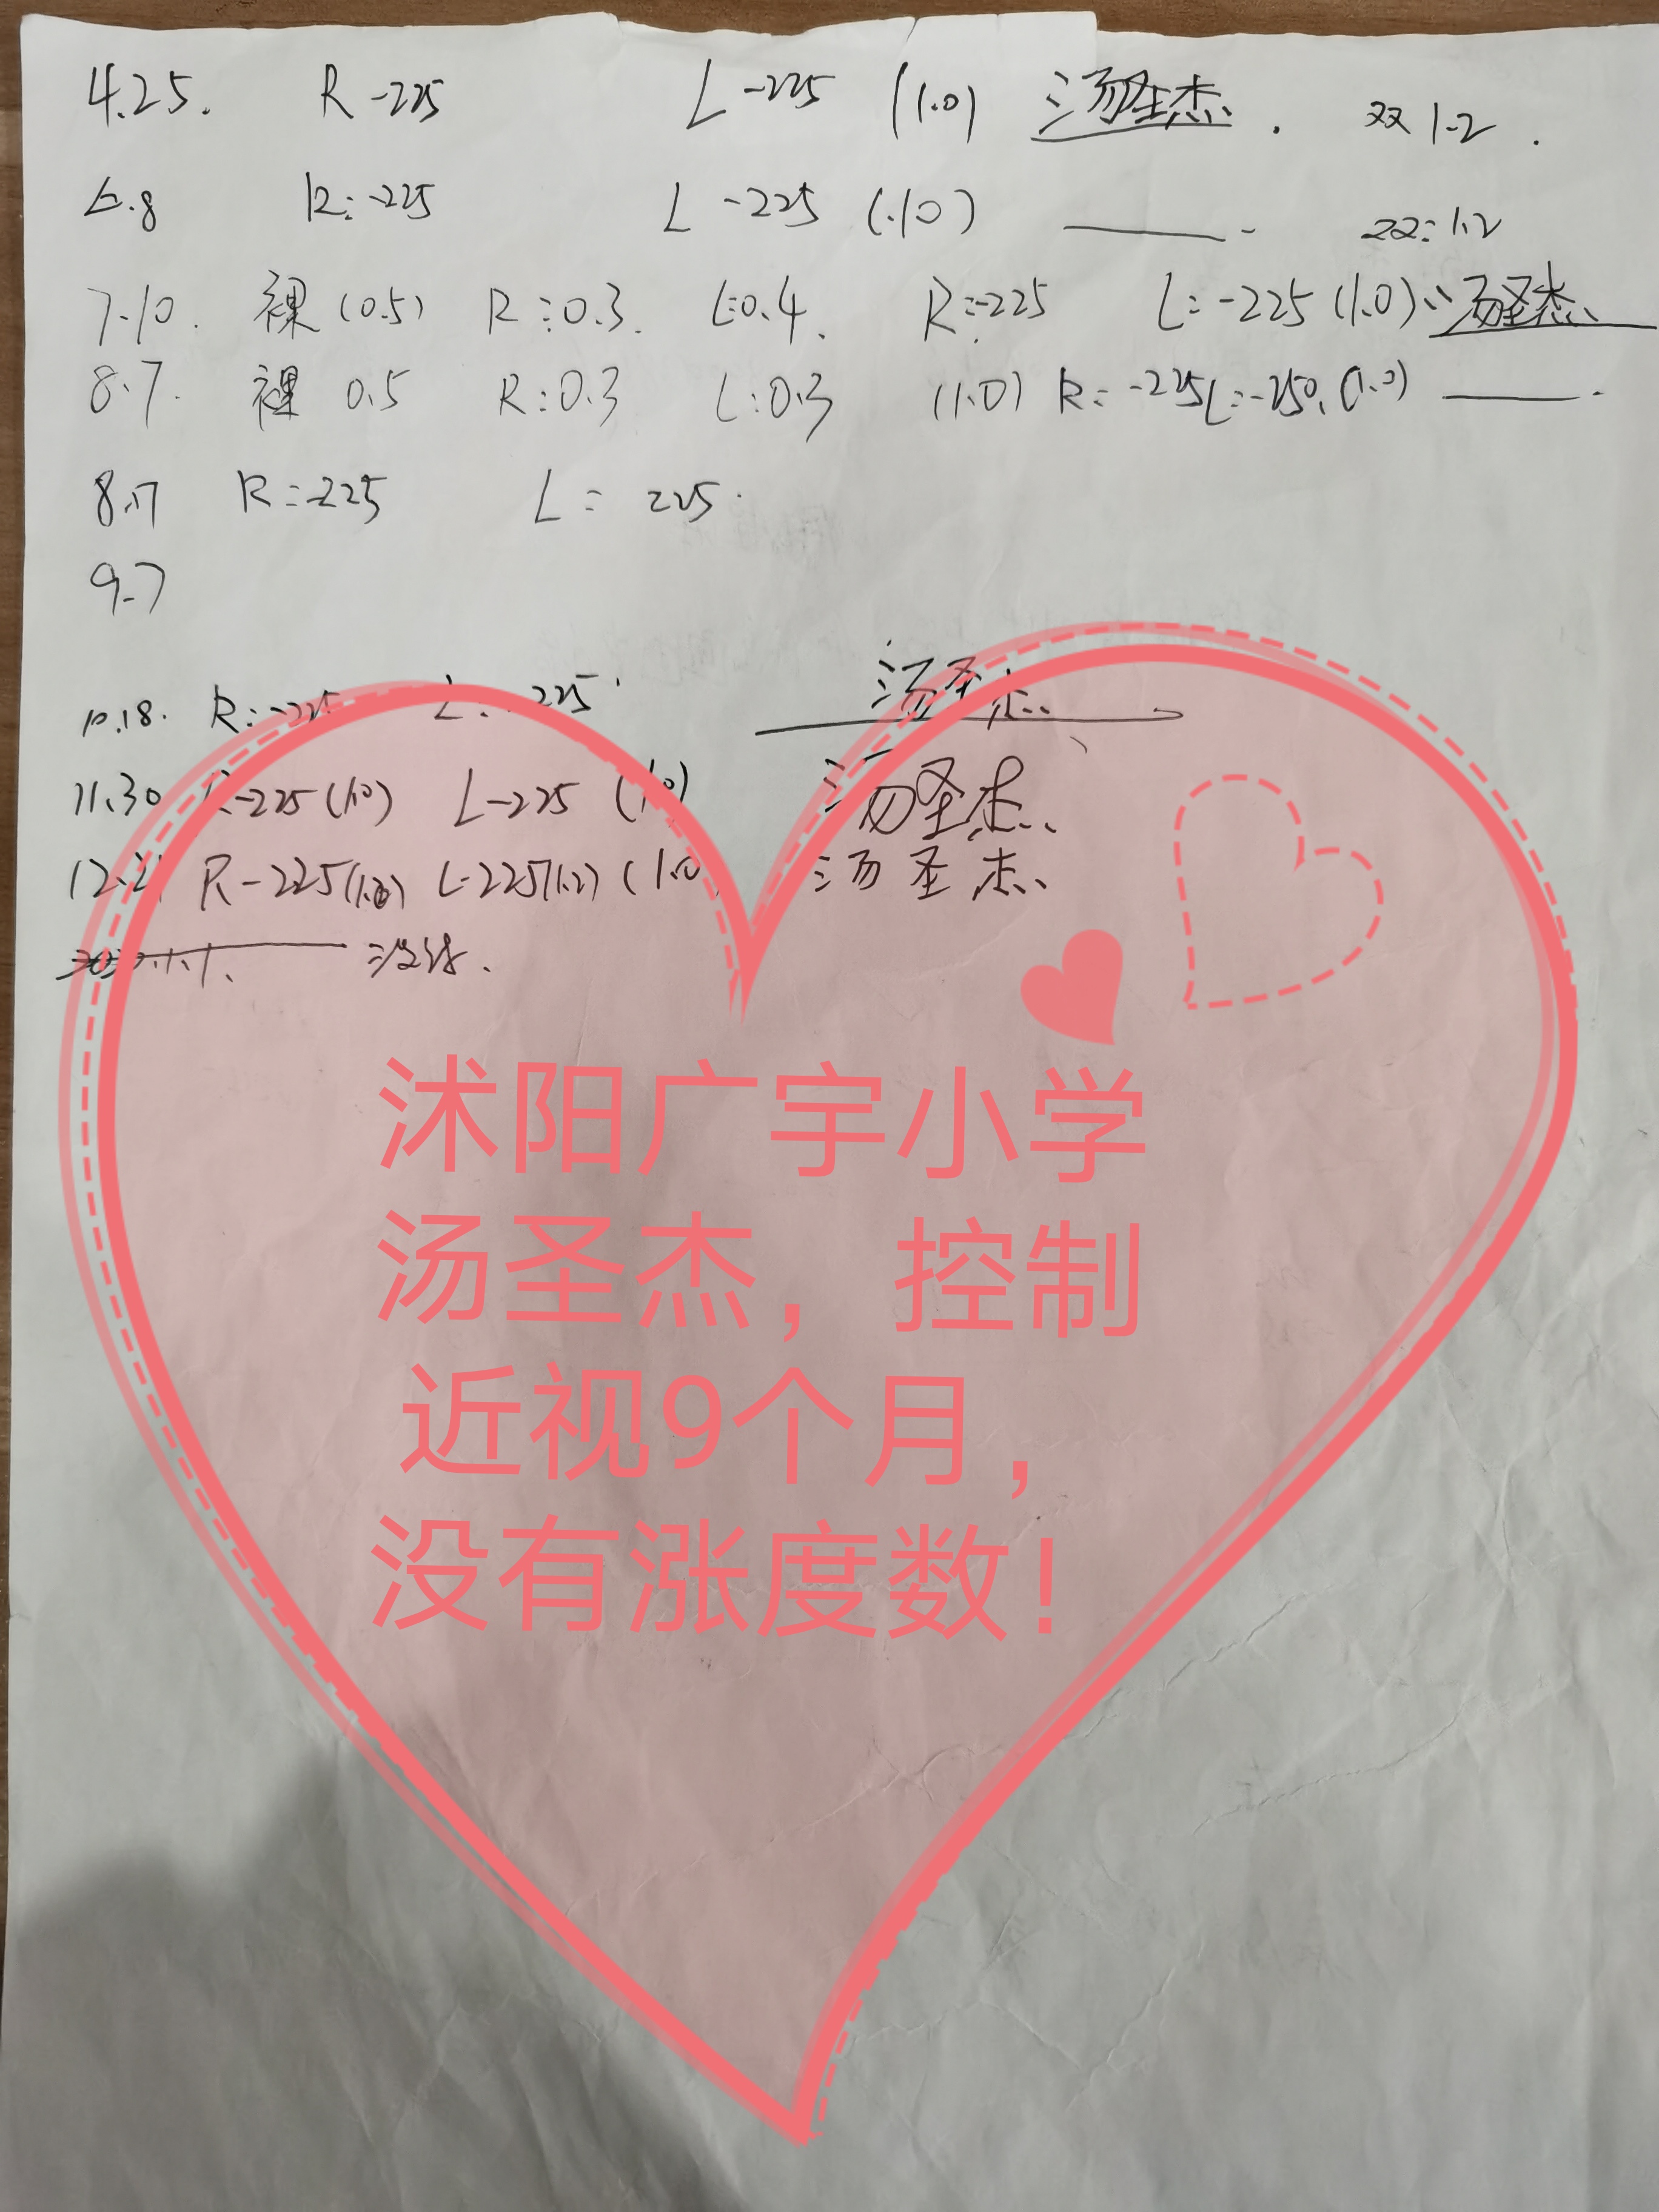 4.25. R -225 L -225 (1.0) 汤圣杰. 双 1.2.
6.8 R: -225 L -225 (1.0) 双: 1.2
7.10. 裸(0.5) R:0.3. L:0.4. R:-225 L:-225(1.0) 汤圣杰
8.7. 裸 0.5 R:0.3 L:0.3 (1.0) R: -225 L:-250. (1.0)
8.17 R:-225 L: 225.
9.7
10.18. R:-225 L: -225 汤圣杰
11.30 R-225(1.0) L-225 (1.0) 汤圣杰
12.21 R-225(1.0) L-225(1.2) (1.0) 汤圣杰
沭阳广宇小学
汤圣杰，控制
近视9个月，
没有涨度数！